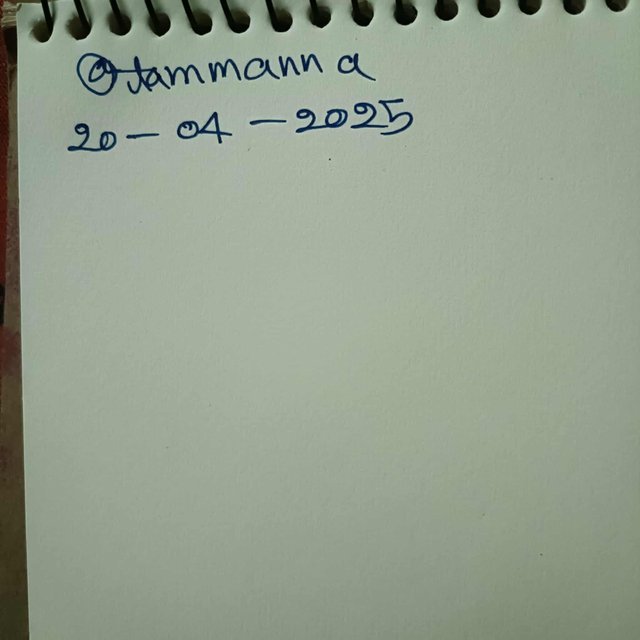 @tammanna
20-04-2025